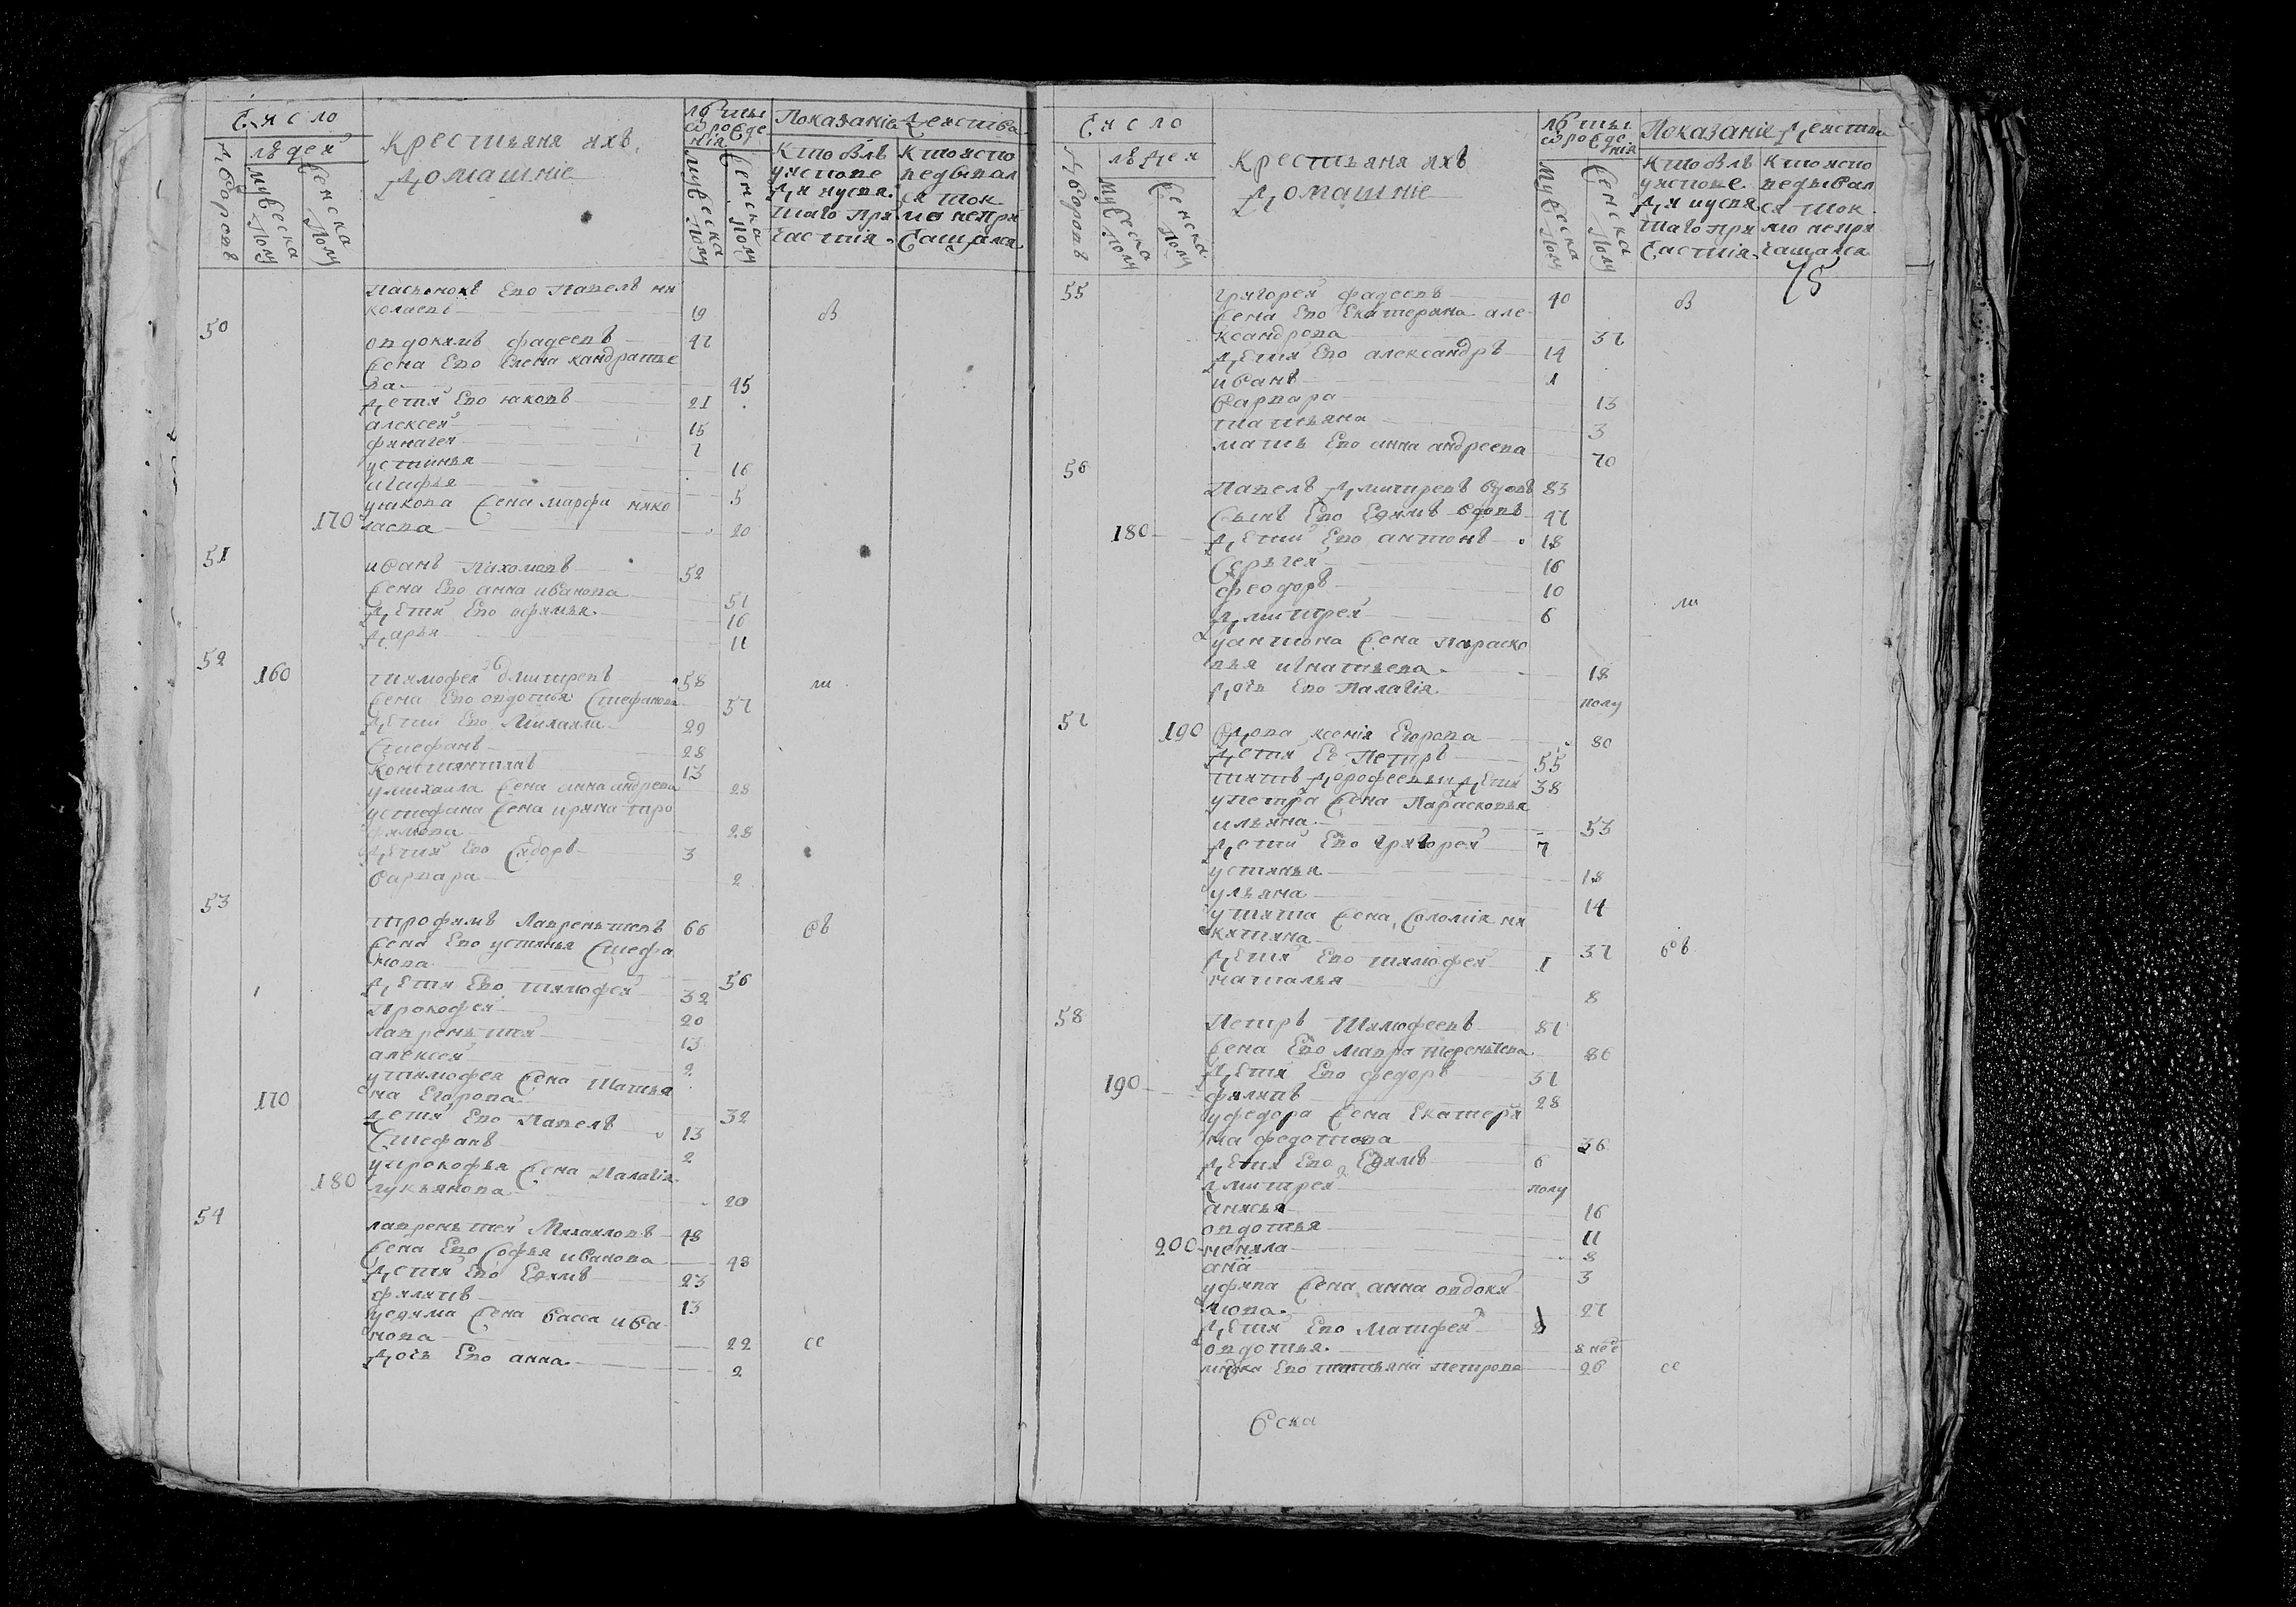 Число
людей
Дворовъ
мужеска полу
женска полу
Крестьяня ихъ
домашніе
лѣты
от рожде
нія
мужеска полу
женска полу
Показаніе действа
Кто былъ
у испове
ди и свя
таго при
частія
Кто испо
ведывал
ся ток
мо непри
чащался
пасынокъ Ево павелъ ни
колаевъ 19
50
овдокимъ фадеевъ 47
жена Ево Елена кандратье
ва 45
дети Ево яковъ 21
алексей 15
7
устинья 16
агафья 5
у якова жена марфа нико
170 лаева 20
51
иванъ Пахомовъ 52
жена Ево анна иванова 51
дети Ево офимья 16
дарья 11
52 160
тимофей дмитревъ 58
жена Ево овдотья стефанова 57
дети Ево Михаила 29
стефанъ 28
констянтинъ 13
у михаила жена анна андреева 28
у стефана жена ирина тро
фимова 28
дети Ево сидоръ 3
варвара 2
53
трофимъ Лаврентьевъ 66
жена Ево устинья стефа
нова 56
дети Ево тимофей 32
прокофей 20
лаврентей 13
алексей 2
у тимофея жена татья
170 на Егорова 32
дети Ево Павелъ 13
стефанъ 2
у прокофья жена палагія
180 лукьянова 20
54
лаврентей Михаиловъ 48
жена Ево софья иванова 48
дети Ево Ефимъ 23
филипъ 13
у ефима жена васса ива
нова 22
дочь Ево анна 2
Число
людей
Дворовъ
мужеска полу
женска полу
Крестьяня ихъ
домашніе
лѣты
от рожде
нія
мужеска полу
женска полу
Показаніе действа
Кто былъ
у испове
ди и свя
таго при
частія
Кто испо
ведывал
ся ток
мо непри
чащался
75
55 григорей фадеевъ 40
жена Ево Екатерина але
ксандрова 37
дети Ево александръ 14
иванъ 1
варвара 13
татьяна 3
мать Ево анна андреева 70
56
Павелъ дмитревъ вдовъ 83
сынъ Ево Ефимъ вдовъ 47
180 дети Ево антонъ 18
сергей 16
феодоръ 10
дмитрей 6
у антона жена параско
вья игнатьева 18
дочь Ево Палагія полу
57 190 вдова ксенія Егорова 80
дети Ее Петръ 55
38
у петра жена парасковья
ильина 53
дети Ево григорей 7
устинья 18
ульяна 14
жена соломія ни
китина 37
дети Ево тимофей 1
наталья 8
58
Петръ тимофеевъ 81
жена Ево мавра терентева 86
дети Ево федоръ 37
190 филипъ 28
у федора жена Екатери
на федотова 36
дети Ево Ефимъ 6
дмитрей полу
анисья 16
овдотья 11
200 ненила 8
3
жена анна овдоки
мова 27
дети Ево Матфей
овдотья 8 нее
Ево татьяна петрова 26